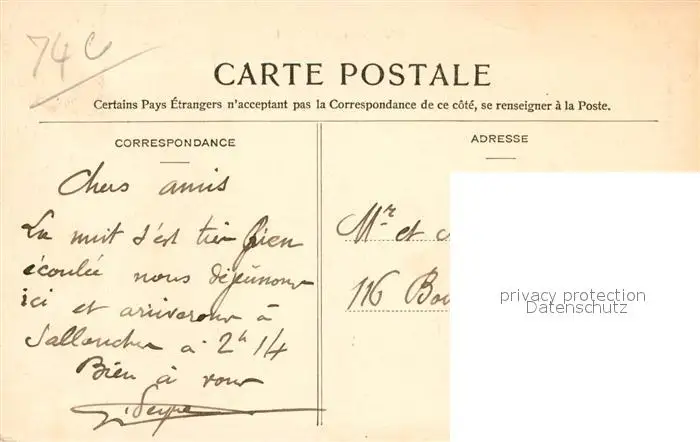 74
CARTE POSTALE
Certains Pays Étrangers n'acceptant pas la Correspondance de ce côté, se renseigner à la Poste.
CORRESPONDANCE
Chers amis
La nuit s'est très bien
écoulée nous déjeûnons
ici et arriverons à
Sallanches à 2h 14
Bien à vous
ADRESSE
Mr et
116 Bou
privacy protection
Datenschutz